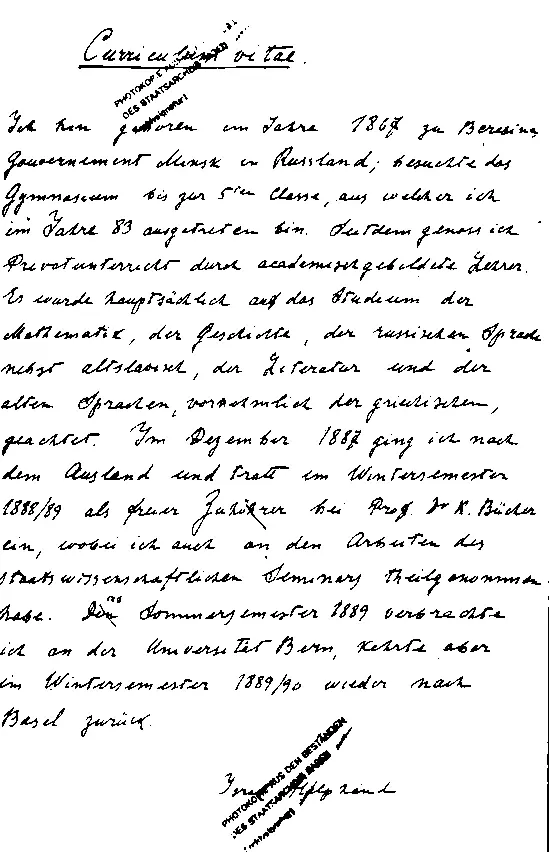 Curriculum vitae.
PHOTOKOPIE AUS
DES STAATSARCHIVS
Ich bin geboren im Jahre 1867 zu Beresina
Gouvernement Minsk in Russland; besuchte das
Gymnasium bis zur 5ten Classe, aus welcher ich
im Jahre 83 ausgetreten bin. Seitdem genoss ich
Privatunterricht durch academisch gebildete Lehrer.
Es wurde hauptsächlich auf das Studium der
Mathematik, der Geschichte, der russischen Sprache
nebst altslavisch, der Literatur und der
alten Sprachen, vornehmlich der griechischen,
geachtet. Im Dezember 1887 ging ich nach
dem Ausland und tratt im Wintersemester
1888/89 als freier Zuhörer bei Prof. Dr K. Bücher
ein, wobei ich auch an den Arbeiten des
staatswissenschaftlichen Seminars theilgenommen
habe. Das Sommersemester 1889 verbrachte
ich an der Universität Bern, kehrte aber
im Wintersemester 1889/90 wieder nach
Basel zurück.
PHOTOKOPIE AUS DEN BESTÄNDEN
DES STAATSARCHIVS BASEL
Helphand